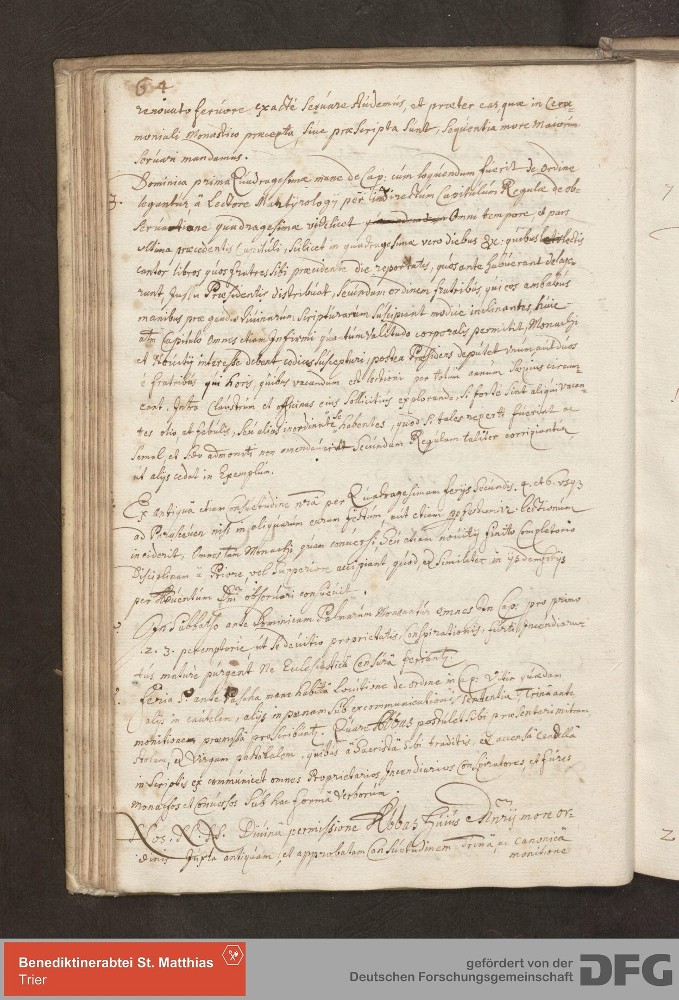 64
renovato fervore exactè servare studemus, et præter ea quæ in Cere-
moniali Monastico præcepta, sive præscripta sunt, sequentia more Maiorum
servari mandamus.
3. Dominica prima Quadragesimæ mane de Cap: cum loquendum fuerit de ordine
legantur à Lectore Martyrologij per directum Capitulum Regulæ de ob-
servatione quadragesimæ videlicet Omni tempore, et pars
ultima præcedentis Capituli, scilicet in quadragesimæ vero diebus &c: quibus lectis
Cantor libros quos fratres sibi præcedente die reportatis, quos ante habuerant
Jussu Præsidentis distribuat, secundum ordinem fratribus qui eos ambabus
manibus præ gaudio divinarum scripturarum suscipiant modice inclinantes, huic
Capitulo omnes etiam Infirmi quantum valitudo corporalis permittit, Monachi
et Novitij interesse debent codices suscepturi, postea Præsidens deputet unum aut duos
è fratribus qui horis, quibus vacandum est lectioni per totum annum circum-
eant Intra Claustrum et officinas eius sollicitius explorando, si forte sint aliqui vacan-
tes otio, et fabulis, seu alias inordinate se habentes, quod si tales reperti fuerint ac
semel et 2do admoniti non emendaverint secundum Regulam taliter corrigantur
ut alijs cedat in Exemplum.
Ex antiqua etiam consuetudine nrâ per Quadragesimam ferijs secundis. 4. et 6. usq3
ad Parasceven nisi in aliquarum earum festum, aut etiam 12 Lectionum
inciderit, Omnes tam Monachi quam conversi, seu etiam novitij finito Completorio
Disciplinam à Priore, vel Superiore accipiant quod et similiter in ijsdem ferijs
per Adventum Dni observari consuevit.
In Sabbatho ante Dominicam Palmarum Moneantur omnes In Cap: pro primo
.2. 3. peremptorie, ut se de vitio proprietatis, Conspirationis, furti, Incendiarus-
tus mature purgent ne Ecclesiastica Censura feriantur.
Feria 5. ante Pascha mane habita Locutione de ordine in Cap. Vitia quædam
alijs in cautelam, alijs in pœnam sub excommunicationis sententia, Trina ante
monitione præmissa proscribuntur. Quare Abbas postulet sibi præsentari mitram
stolam, et Virgam pastoralem, quibus à Sacrista sibi traditis, et accensa Candela
in scriptis excommunicet omnes Proprietarios Incendiarios Conspiratores, et fures
Monachos et Conversos sub hac forma Verborum.
Nos. N. N. Divina permissione Abbas huius Mnrij more or-
dinis Juxta antiquam, et approbatam Consuetudinem Trina, ac Canonica
monitione
Benediktinerabtei St. Matthias
Trier
gefördert von der
Deutschen Forschungsgemeinschaft DFG